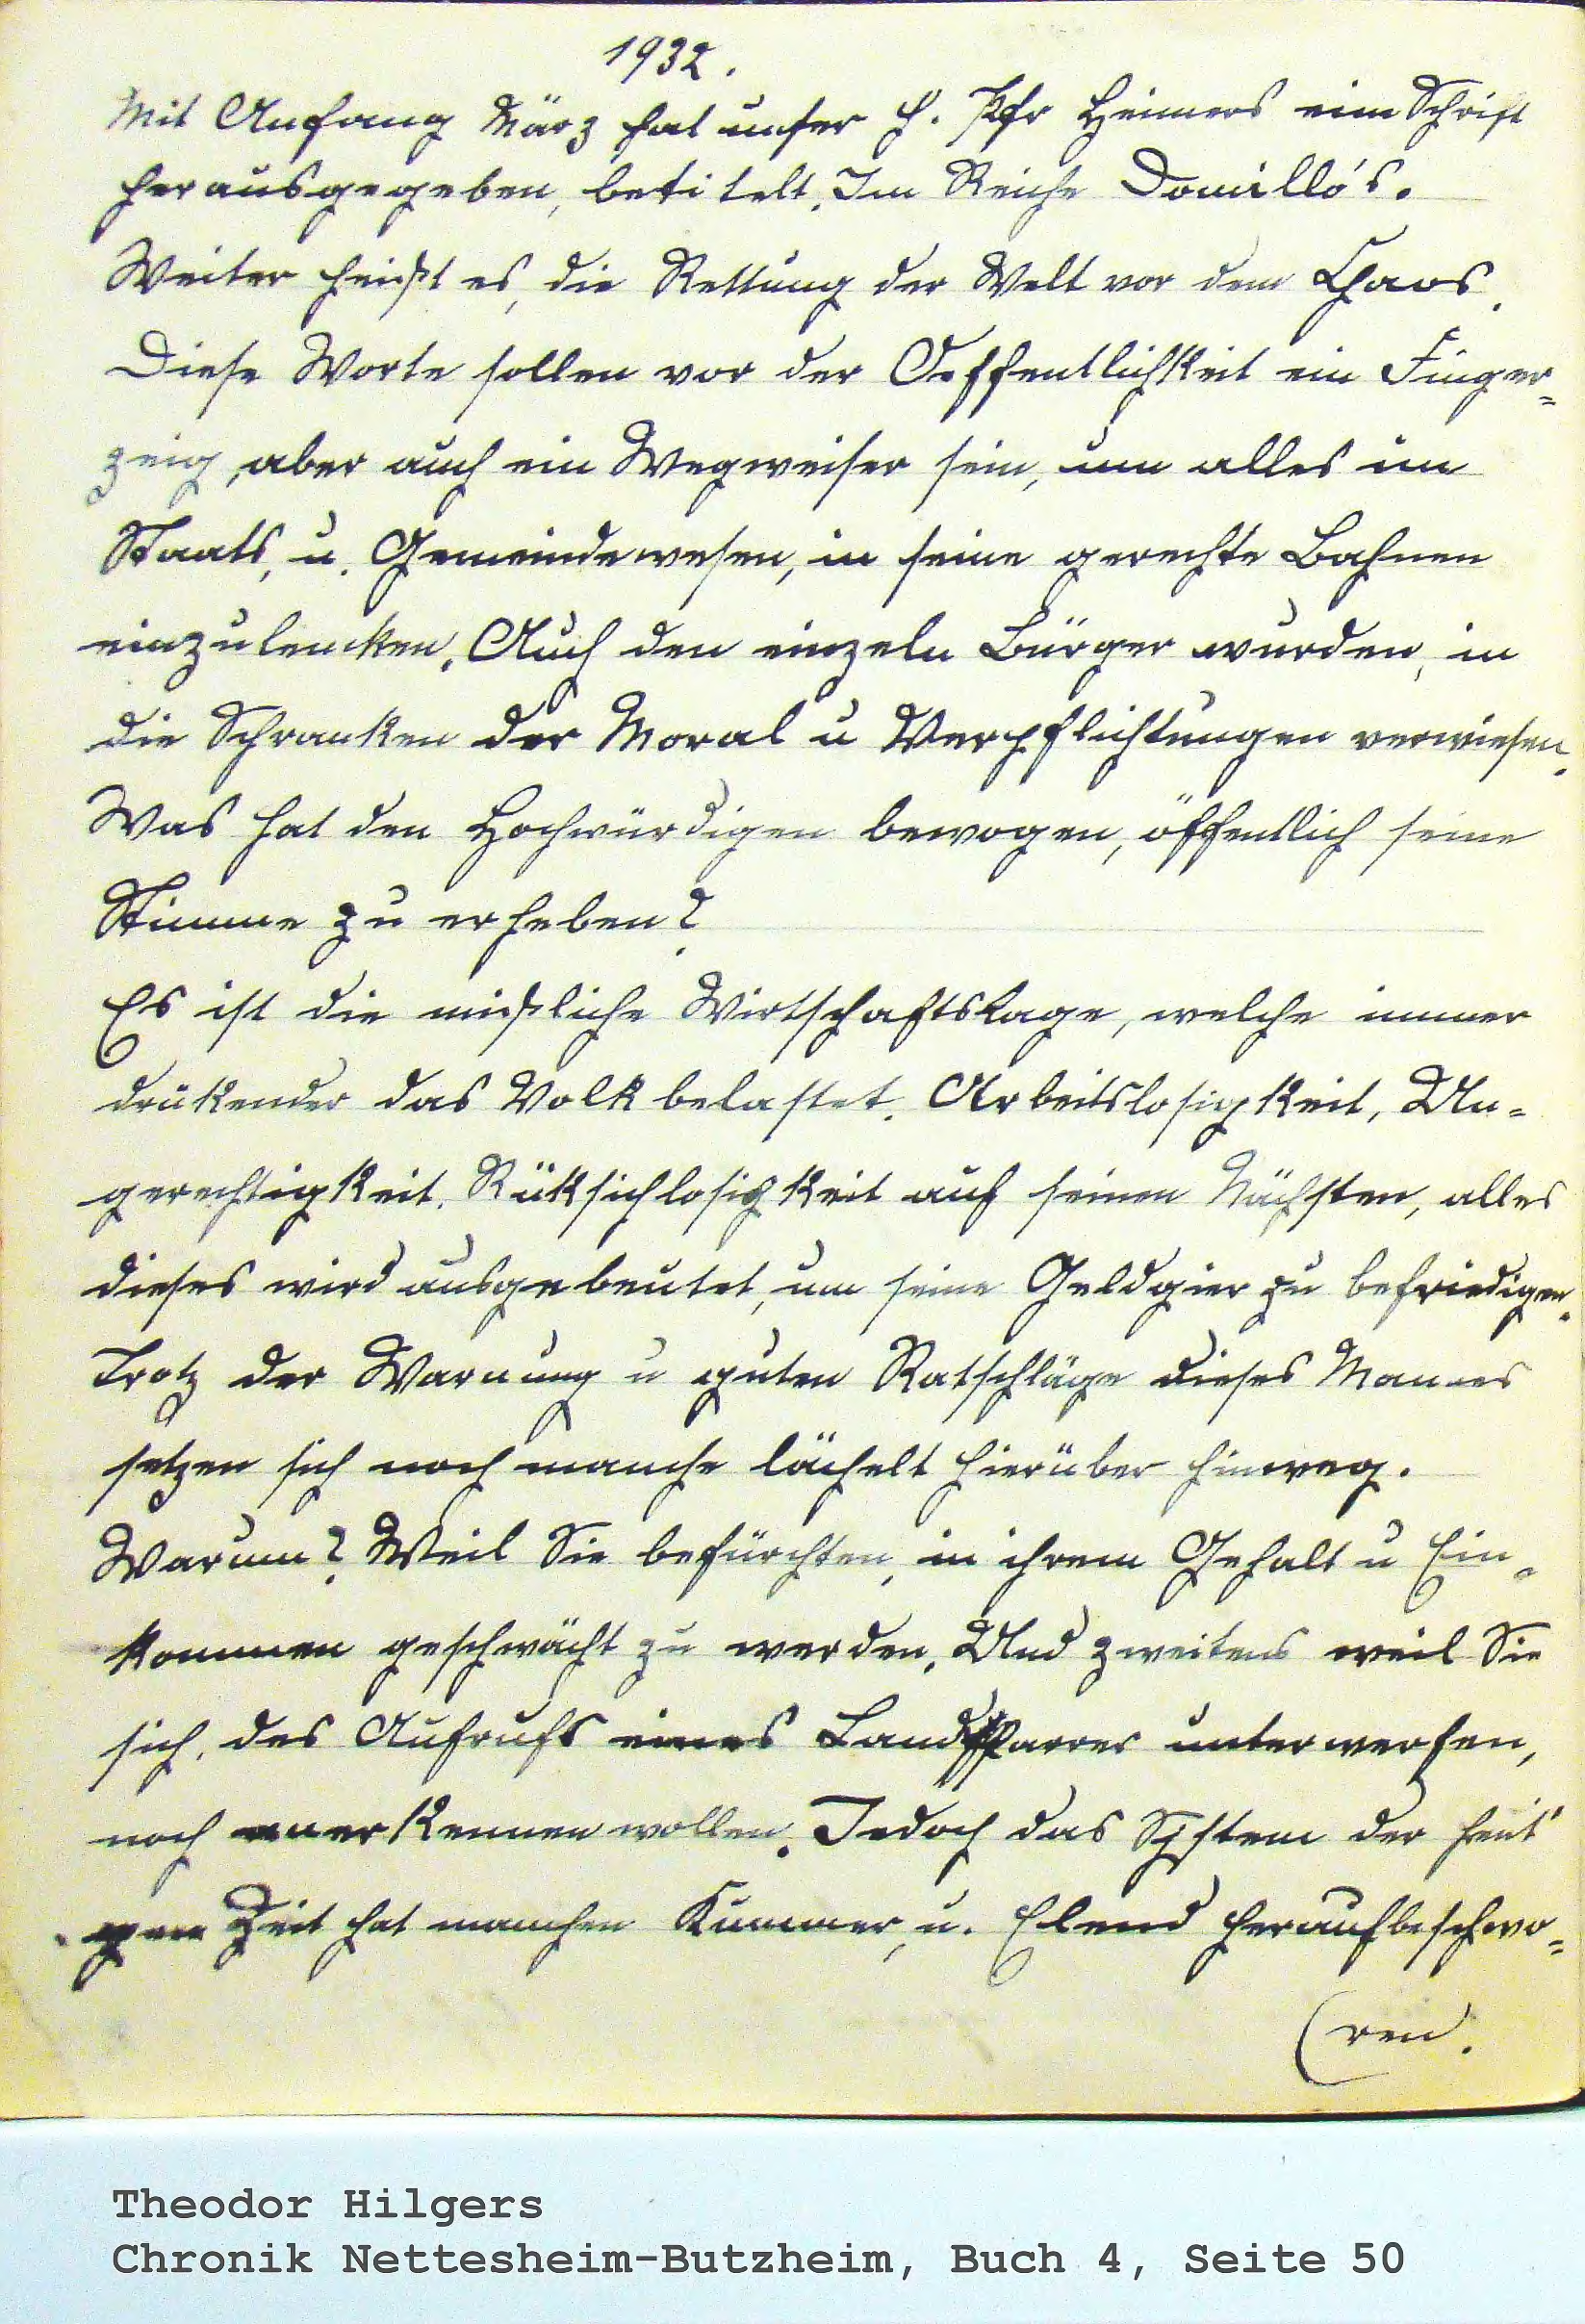 1932.
Mit Anfang März hat unser H. Pfr Heimers eine Schrift
herausgegeben, betitelt. Im Reiche Domillo's.
Weiter heißt es, die Rettung der Welt vor dem Chaos.
Diese Worte sollen vor der Oeffentlichkeit ein Finger=
zeig, aber auch ein Wegweiser sein, um alles im
Staats, u. Gemeindewesen, in seine gerechte Bahnen
einzulencken. Auch den einzeln Bürger wurden, in
die Schranken der Moral u Verpflichtungen verwiesen.
Was hat den Hochwürdigen bewogen, öffentlich seine
Stimme zu erheben?
Es ist die mißliche Wirtschaftslage, welche immer
drükender das Volk belastet. Arbeitslosigkeit, Un=
gerechtigkeit. Rüksichlosigkeit auf seinen Nächsten, alles
dieses wird ausgebeutet, um seine Geldgier zu befriedigen.
Trotz der Warnung u guten Ratschläge dieses Mannes
setzen sich noch manche lächelt hierüber hinweg.
Warum? Weil Sie befürchten, in ihrem Gehalt u Ein=
kommen geschwächt zu werden. Und zweitens weil Sie
sich, des Aufrufs eines Landpfarrer unterwerfen,
noch anerkennen wollen. Jedoch das System der heut'
gen Zeit hat manchen Kummer, u. Elend heraufbeschwo=
(ren.
Theodor Hilgers
Chronik Nettesheim-Butzheim, Buch 4, Seite 50